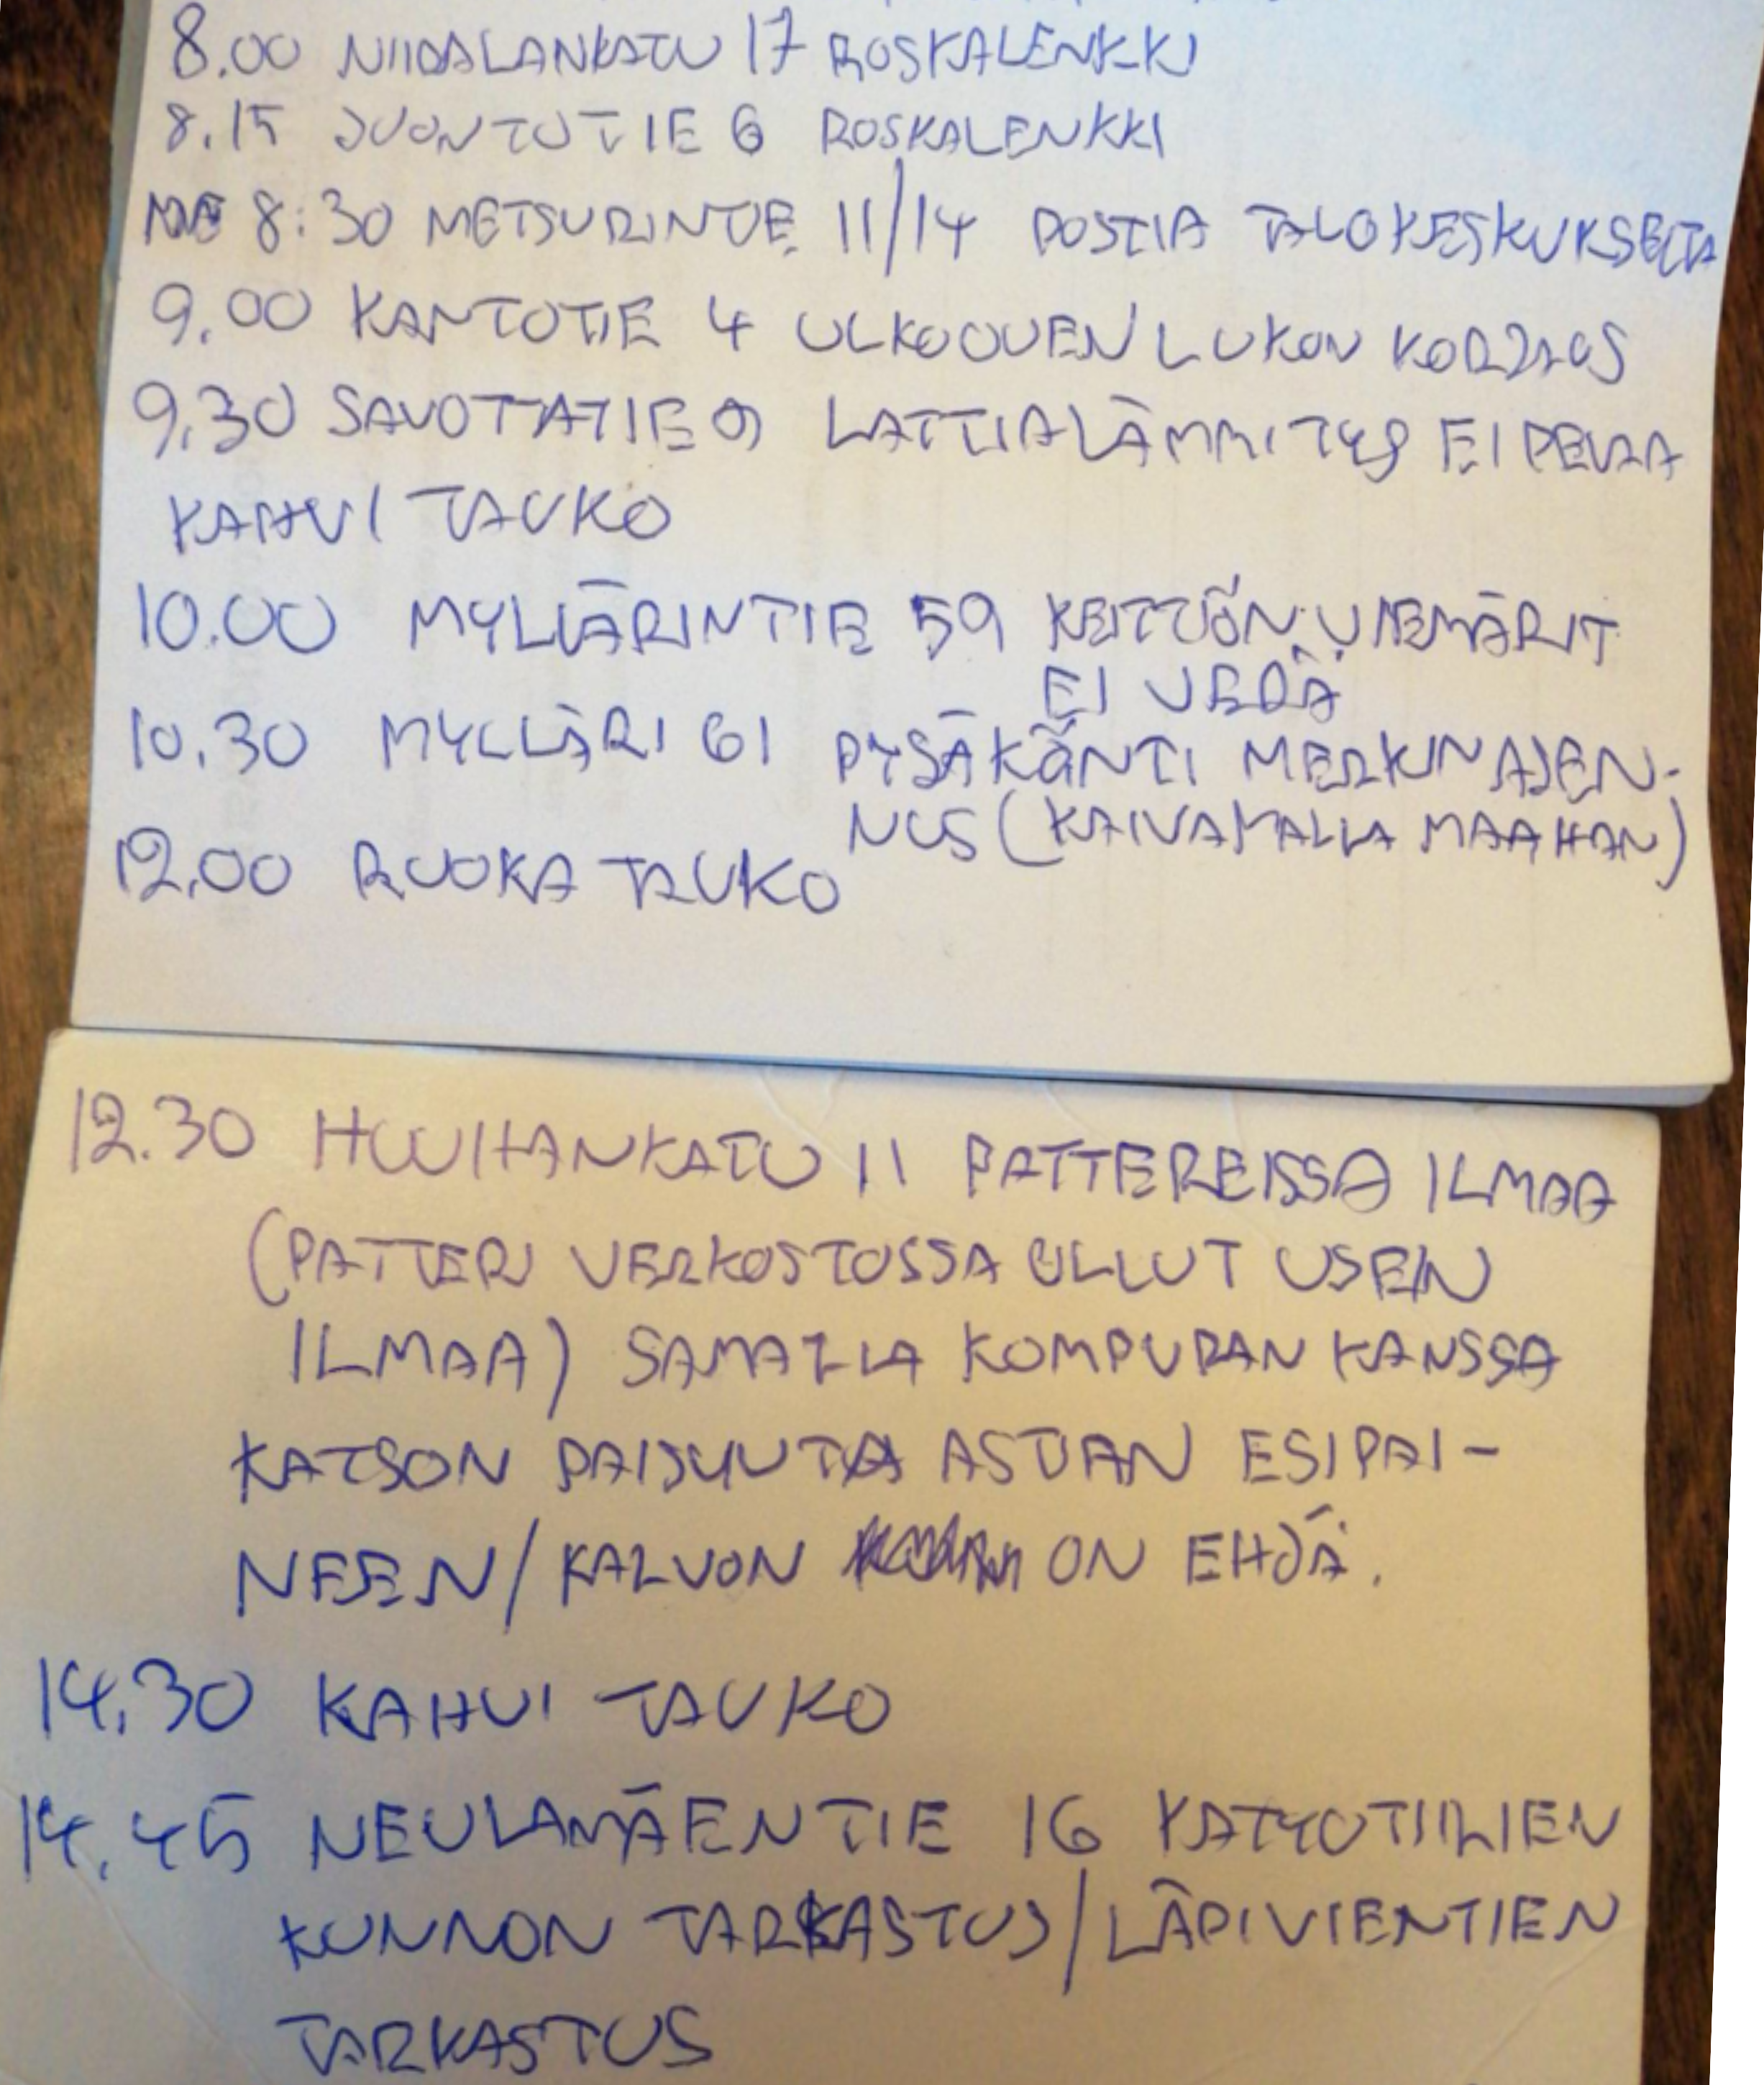 8.00 NIIRALANKATU 17 ROSKALENKKI
8.15 JUONTOTIE 6 ROSKALENKKI
8:30 METSURINTIE 11/14 POSTIA TALOKESKUKSELTA
9.00 KANTOTIE 4 ULKOOVEN LUKON KORJAUS
9.30 SAVOTTATIE 9 LATTIALÄMMITYS EI PELAA
KAHVI TAUKO
10.00 MYLLÄRINTIE 59 KEITTIÖN VIEMÄRIT
EI VEDÄ
10.30 MYLLÄRI 61 PYSÄKÖNTI MERKIN ASEN-
NUS (KAIVAMALLA MAAHAN)
12.00 RUOKA TAUKO
12.30 HUUHANKATU 11 PATTEREISSA ILMAA
(PATTERI VERKOSTOSSA OLLUT USEIN
ILMAA) SAMALLA KOMPURAN KANSSA
KATSON PAISUNTA ASTIAN ESIPAI-
NEEN/KALVON ON EHJÄ.
14.30 KAHVI TAUKO
14.45 NEULAMÄENTIE 16 KATTOTIILIEN
KUNNON TARKASTUS/LÄPIVIENTIEN
TARKASTUS